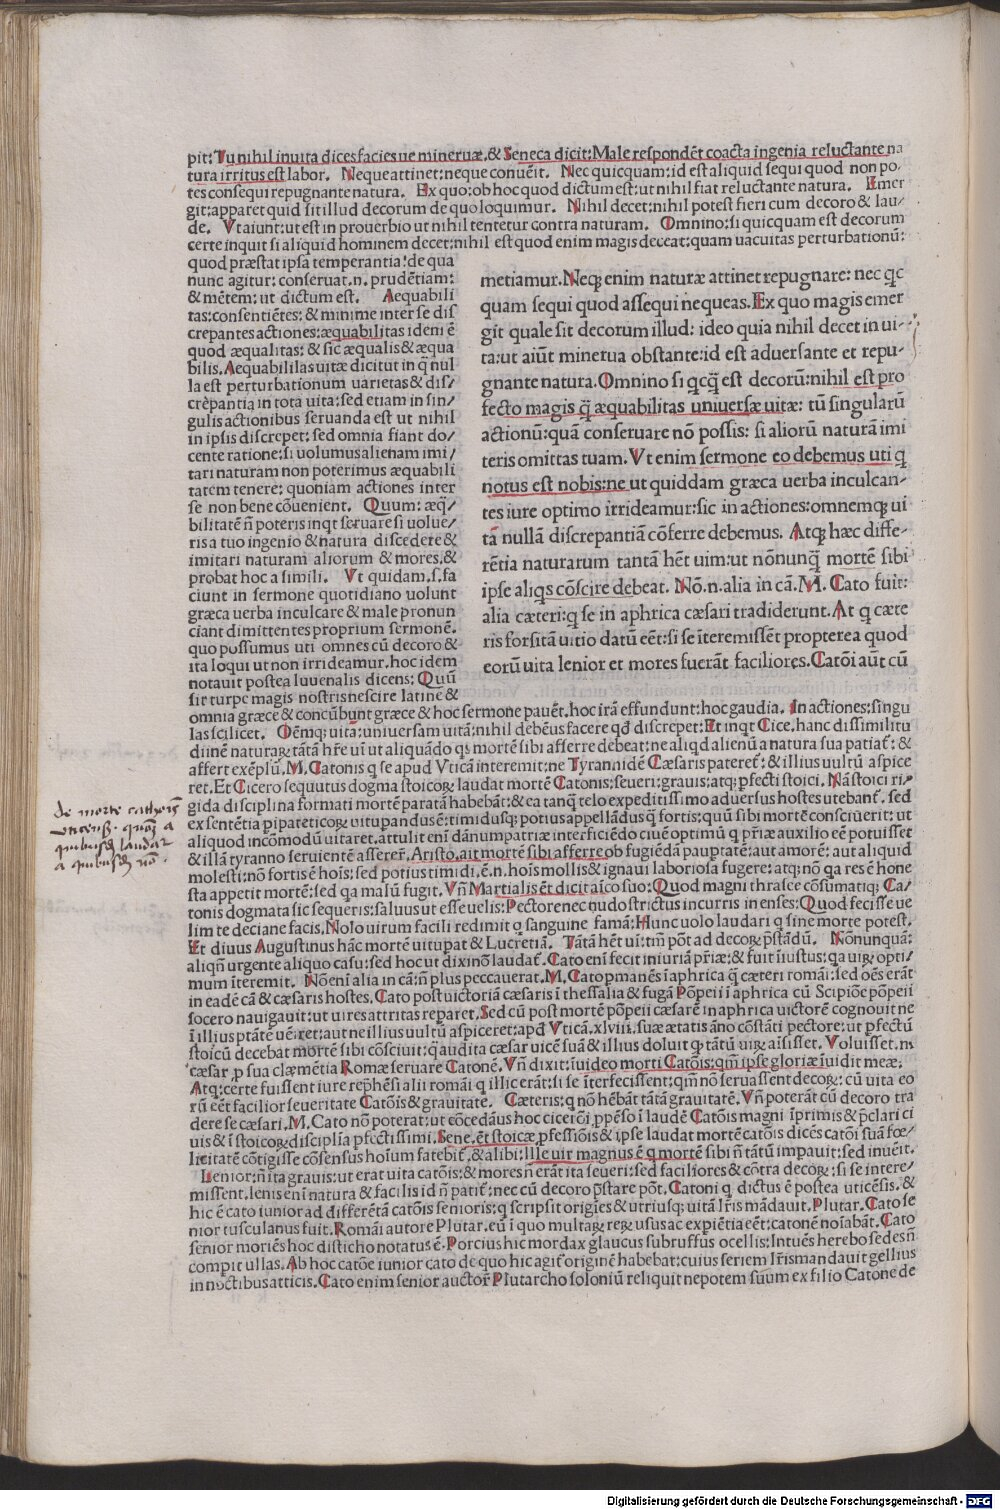 pit: Tu nihil inuita dices faciesue mineruæ. & Seneca dicit: Male respondẽt coacta ingenia reluctante na
tura irritus est labor. Neque attinet: neque conuẽit. Nec quicquam: id est aliquid sequi quod non po-
tes consequi repugnante natura. Ex quo: ob hoc quod dictum est: ut nihil fiat reluctante natura. Emer
git: apparet quid sit illud decorum de quo loquimur. Nihil decet: nihil potest fieri cum decoro & lau/
de. Vt aiunt: ut est in prouerbio ut nihil tentetur contra naturam. Omnino: si quicquam est decorum
certe inquit si aliquid hominem decet: nihil est quod enim magis deceat: quam uacuitas perturbationũ:
quod præstat ipsa temperantia: de qua
nunc agitur: conseruat.n. prudẽtiam:
& mẽtem: ut dictum est. Aequabili
tas: consentiẽtes: & minime inter se dis
crepantes actiones: æquabilitas idem ẽ
quod æqualitas: & sic æqualis & æqua
bilis. Aequabilitas uitæ dicitur in q̃ nul
la est perturbationum uarietas & dis/
crepantia in tota uita: sed etiam in sin/
gulis actionibus seruanda est ut nihil
in ipsis discrepet: sed omnia fiant do/
cente ratione: si uolumus alienam imi/
tari naturam non poterimus æquabili
tatem tenere: quoniam actiones inter
se non bene cõuenient. Quum: æq̃/
bilitatẽ ñ poteris inqt seruare si uolue/
ris a tuo ingenio & natura discedere &
imitari naturam aliorum & mores, &
probat hoc a simili. Vt quidam. s. fa
ciunt in sermone quotidiano uolunt
græca uerba inculcare & male pronun
ciant dimittentes proprium sermonẽ.
quo possumus uti omnes cũ decoro &
ita loqui ut non irrideamur. hoc idem
notauit postea Iuuenalis dicens: Quũ
sit turpe magis nostris nescire latine &
metiamur. Neq; enim naturæ attinet repugnare: nec qc
quam sequi quod assequi nequeas. Ex quo magis emer
git quale sit decorum illud: ideo quia nihil decet in ui-
ta: ut aiũt minerua obstante: id est aduersante et repu-
gnante natura. Omnino si qcq̃ est decorũ: nihil est pro
fecto magis q̃ æquabilitas uniuersæ uitæ: tũ singularũ
actionũ: quã conseruare nõ possis: si aliorũ naturã imi
teris omittas tuam. Vt enim sermone eo debemus uti q
notus est nobis: ne ut quiddam græca uerba inculcan-
tes iure optimo irrideamur: sic in actiones: omnemq; ui
tã nullã discrepantiã cõferre debemus. Atq; hæc diffe-
rẽtia naturarum tantã hẽt uim: ut nõnunq̃ mortẽ sibi
ipse aliqs cõscire debeat. Nõ.n. alia in cã. M. Cato fuit:
alia cæteri: q se in aphrica cæsari tradiderunt. At q cæte
ris forsitã uitio datũ eẽt: si se ĩteremissẽt propterea quod
eorũ uita lenior et mores fuerãt faciliores. Catõi aũt cũ
omnia græce & concũbunt græce & hoc sermone pauẽt. hoc irã effundunt: hoc gaudia. In actiones: singu
las scilicet. Oẽmq; uitã: uniuersam uitã: nihil debẽus facere qđ discrepet: Et inqt Cice. hanc dissimilitu
affert exẽplũ. M. Catonis q se apud Vticã interemit: ne Tyrannidẽ Cæsaris pateret̃: & illius uultũ aspice
ret. Et Cicero sequutus dogma stoicoꝝ laudat mortẽ Catonis: seueri: grauis: atq; pfecti stoici. Nã stoici ri/
gida disciplina formati mortẽ paratã habebãt: & ea tanq̃ telo expeditissimo aduersus hostes utebant̃. sed
ex sentẽtia pipateticoꝝ uituperandus ẽ: timidusq; potius appellãdus q̃ fortis: quũ sibi mortẽ consciuerit: ut
aliquod incõmodũ uitaret. attulit enĩ dãnum patriæ interficiẽdo ciuẽ optimũ q priæ auxilio eẽ potuisset
& illã tyranno seruientẽ assereret. Aristo. ait mortẽ sibi afferre ob fugiẽdã pauptatẽ: aut amorẽ: aut aliquid
molesti: nõ fortis ẽ hoĩs: sed potius timidi. ẽ.n. hoĩs mollis & ignaui laboriosa fugere: atq; nõ qa res ẽ hone
sta appetit mortẽ: sed qa malũ fugit. Vñ Martialis ẽt dicit aĩco suo: Quod magni thrasee cõsumatiq; Ca/
tonis dogmata sic sequeris: saluus ut esse uelis: Pectore nec nudo strictus incurris in enses: Quod fecisse ue
lim te deciane facis. Nolo uirum facili redimit q sanguine famã: Hunc uolo laudari q sine morte potest.
Et diuus Augustinus hãc mortẽ uitupat & Lucretiã. Tãtã hẽt ui: tm̃ põt ad decoꝝ pstãdũ. Nõnunquã:
aliqñ urgente aliquo casu: sed hoc ut dixi nõ laudat̃. Cato enĩ fecit iniuriã priæ: & fuit ĩiustus: qa uiꝝ opti/
mum ĩteremit. Nõ enĩ alia in cã: ñ plus peccauerat. M. Cato pmanẽs ĩ aphrica q̃ cæteri romãi: sed oẽs erãt
in eadẽ cã & cæsaris hostes. Cato post uictoriã cæsaris ĩ thessalia & fugã Põpeii ĩ aphrica cũ Scipiõe põpeii
socero nauigauit: ut uires attritas reparet. Sed cũ post mortẽ põpeii cæsarẽ in aphrica uictorẽ cognouit ne
ĩ illius ptãtẽ uẽiret: aut ne illius uultũ aspiceret: apđ Vticã. xlviii. suæ ætatis ãno cõstãti pectore: ut pfectũ
stoicũ decebat mortẽ sibi cõsciuit: q̃ audita cæsar uicẽ suã & illius doluit q tãtũ uiꝝ aĩsisset. Voluisset.n.
cæsar p sua clæmẽtia Romæ seruare Catonẽ. Vñ dixit: ĩuideo morti Catõis: qm̃ ipse gloriæ ĩuidit meæ.
Atq; certe fuissent iure rephẽsi alii romãi q illic erãt: si se ĩterfecissent: qm̃ nõ seruassent decoꝝ: cũ uita eo
rũ eẽt facilior seueritate Catõis & grauitate. Cæteris: q nõ hẽbãt tãtã grauitatẽ. Vñ poterãt cũ decoro tra
dere se cæsari. M. Cato nõ poterat: ut cõcedãus hoc cicerõi ppẽso ĩ laudẽ Catõis magni ĩprimis & pclari ci
uis & ĩ stoicoꝝ disciplĩa pfectissimi. Sene. ẽt stoicæ pfessiõis & ipse laudat mortẽ catõis dicẽs catõi suã fœ/
licitatẽ cõtigisse cõsensus hoĩum fatebit̃. & alibi: Ille uir magnus ẽ q mortẽ sibi ñ tãtũ impauit: sed inuẽit.
Lenior: ñ ita grauis: ut erat uita catõis: & mores ñ erãt ita seueri: sed faciliores & cõtra decoꝝ: si se intere/
missent. lenis enĩ natura & facilis id ñ patit̃: nec cũ decoro pstare põt. Catoni q dictus ẽ postea uticẽsis. &
hic ẽ cato iunior ad differẽtã catõis senioris: q scripsit origĩes & utriusq; uitã lr̃is mãdauit. Plutar. Cato se
nior tusculanus fuit. Romãi autore Plutar. cũ ĩ quo multaꝝ reꝝ usus ac expiẽtia eẽt: catonẽ noĩabãt. Cato
senior moriẽs hoc disticho notatus ẽ. Porcius hic mordax glaucus subruffus ocellis: Intuẽs herebo sedes ñ
compit ullas. Ab hoc catõe iunior cato de quo hic agit̃ originẽ habebat: cuius seriem lr̃is mandauit gellius
in noctibus atticis. Cato enim senior auctor̃ Plutarcho soloniũ reliquit nepotem suum ex filio Catone de
de morte cathonis
uticensis. quam a
quibusdam laudatur
a quibusdam non.
Digitalisierung gefördert durch die Deutsche Forschungsgemeinschaft - DFG